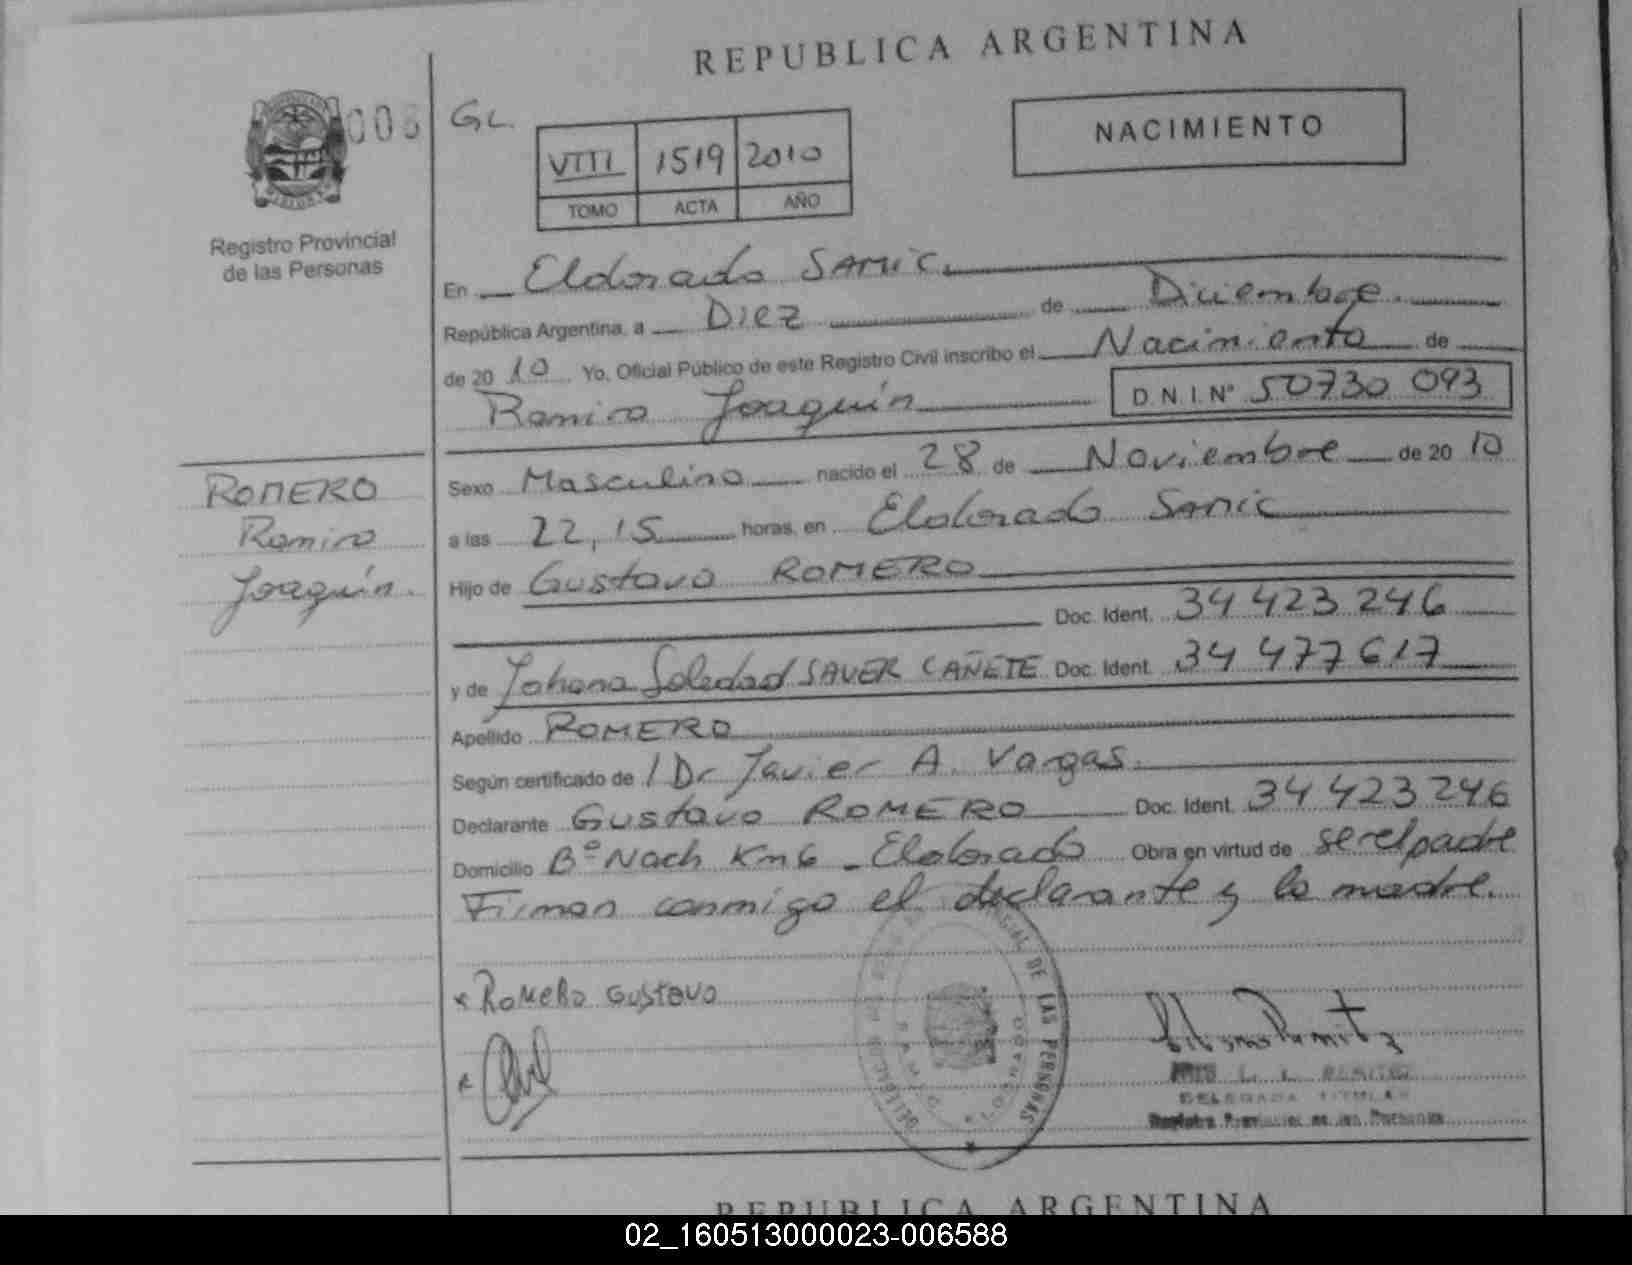 REPUBLICA ARGENTINA
006
GL.
NACIMIENTO
VIII 1519 2010
TOMO ACTA AÑO
Registro Provincial
de las Personas
En Eldorado SAMIC.
República Argentina, a Diez de Diciembre.
de 20 10 Yo, Oficial Público de este Registro Civil inscribo el Nacimiento de
Ramiro Joaquín D.N.I.Nº 50730 093
ROMERO
Ramiro
Joaquín.
Sexo Masculino nacido el 28 de Noviembre de 20 10
a las 22,15 horas, en Eldorado Samic
Hijo de Gustavo ROMERO
Doc. Ident. 34 423 246
y de Johana Soledad SAUER CAÑETE Doc. Ident. 34 477 617
Apellido ROMERO
Según certificado de / Dr Javier A. Vargas.
Declarante Gustavo ROMERO Doc. Ident. 34 423 246
Domicilio Bº Nach Km 6 - Eldorado Obra en virtud de ser el padre
Firman conmigo el declarante y la madre.
x Romero Gustavo
x
DE LAS PERSONAS
S.A.M.I.C.
ELDORADO
L. BENITEZ
DELEGADA TITULAR
Registro Provincial de las Personas
REPUBLICA ARGENTINA
02_160513000023-006588